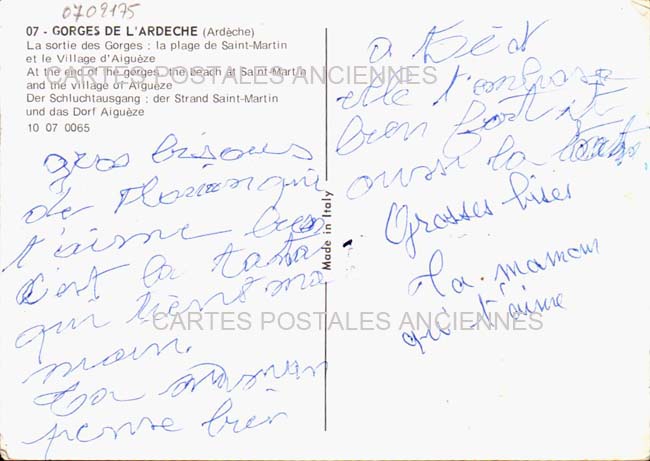 0709175
07 - GORGES DE L'ARDECHE (Ardèche)
La sortie des Gorges : la plage de Saint-Martin
et le Village d'Aiguèze
At the end of the gorges : the beach at Saint-Martin
and the Village of Aiguèze
Der Schluchtausgang : der Strand Saint-Martin
und das Dorf Aiguèze
10 07 0065
CARTES POSTALES ANCIENNES
gros bisous
de Florian qui
t'aime bien
c'est la tata
qui tient ma
main.
ta maman
pense bien
Made in Italy
a
elle t'embrasse
bien fort et
aussi la tata
Grosses bises
Ta maman
qui t'aime
CARTES POSTALES ANCIENNES